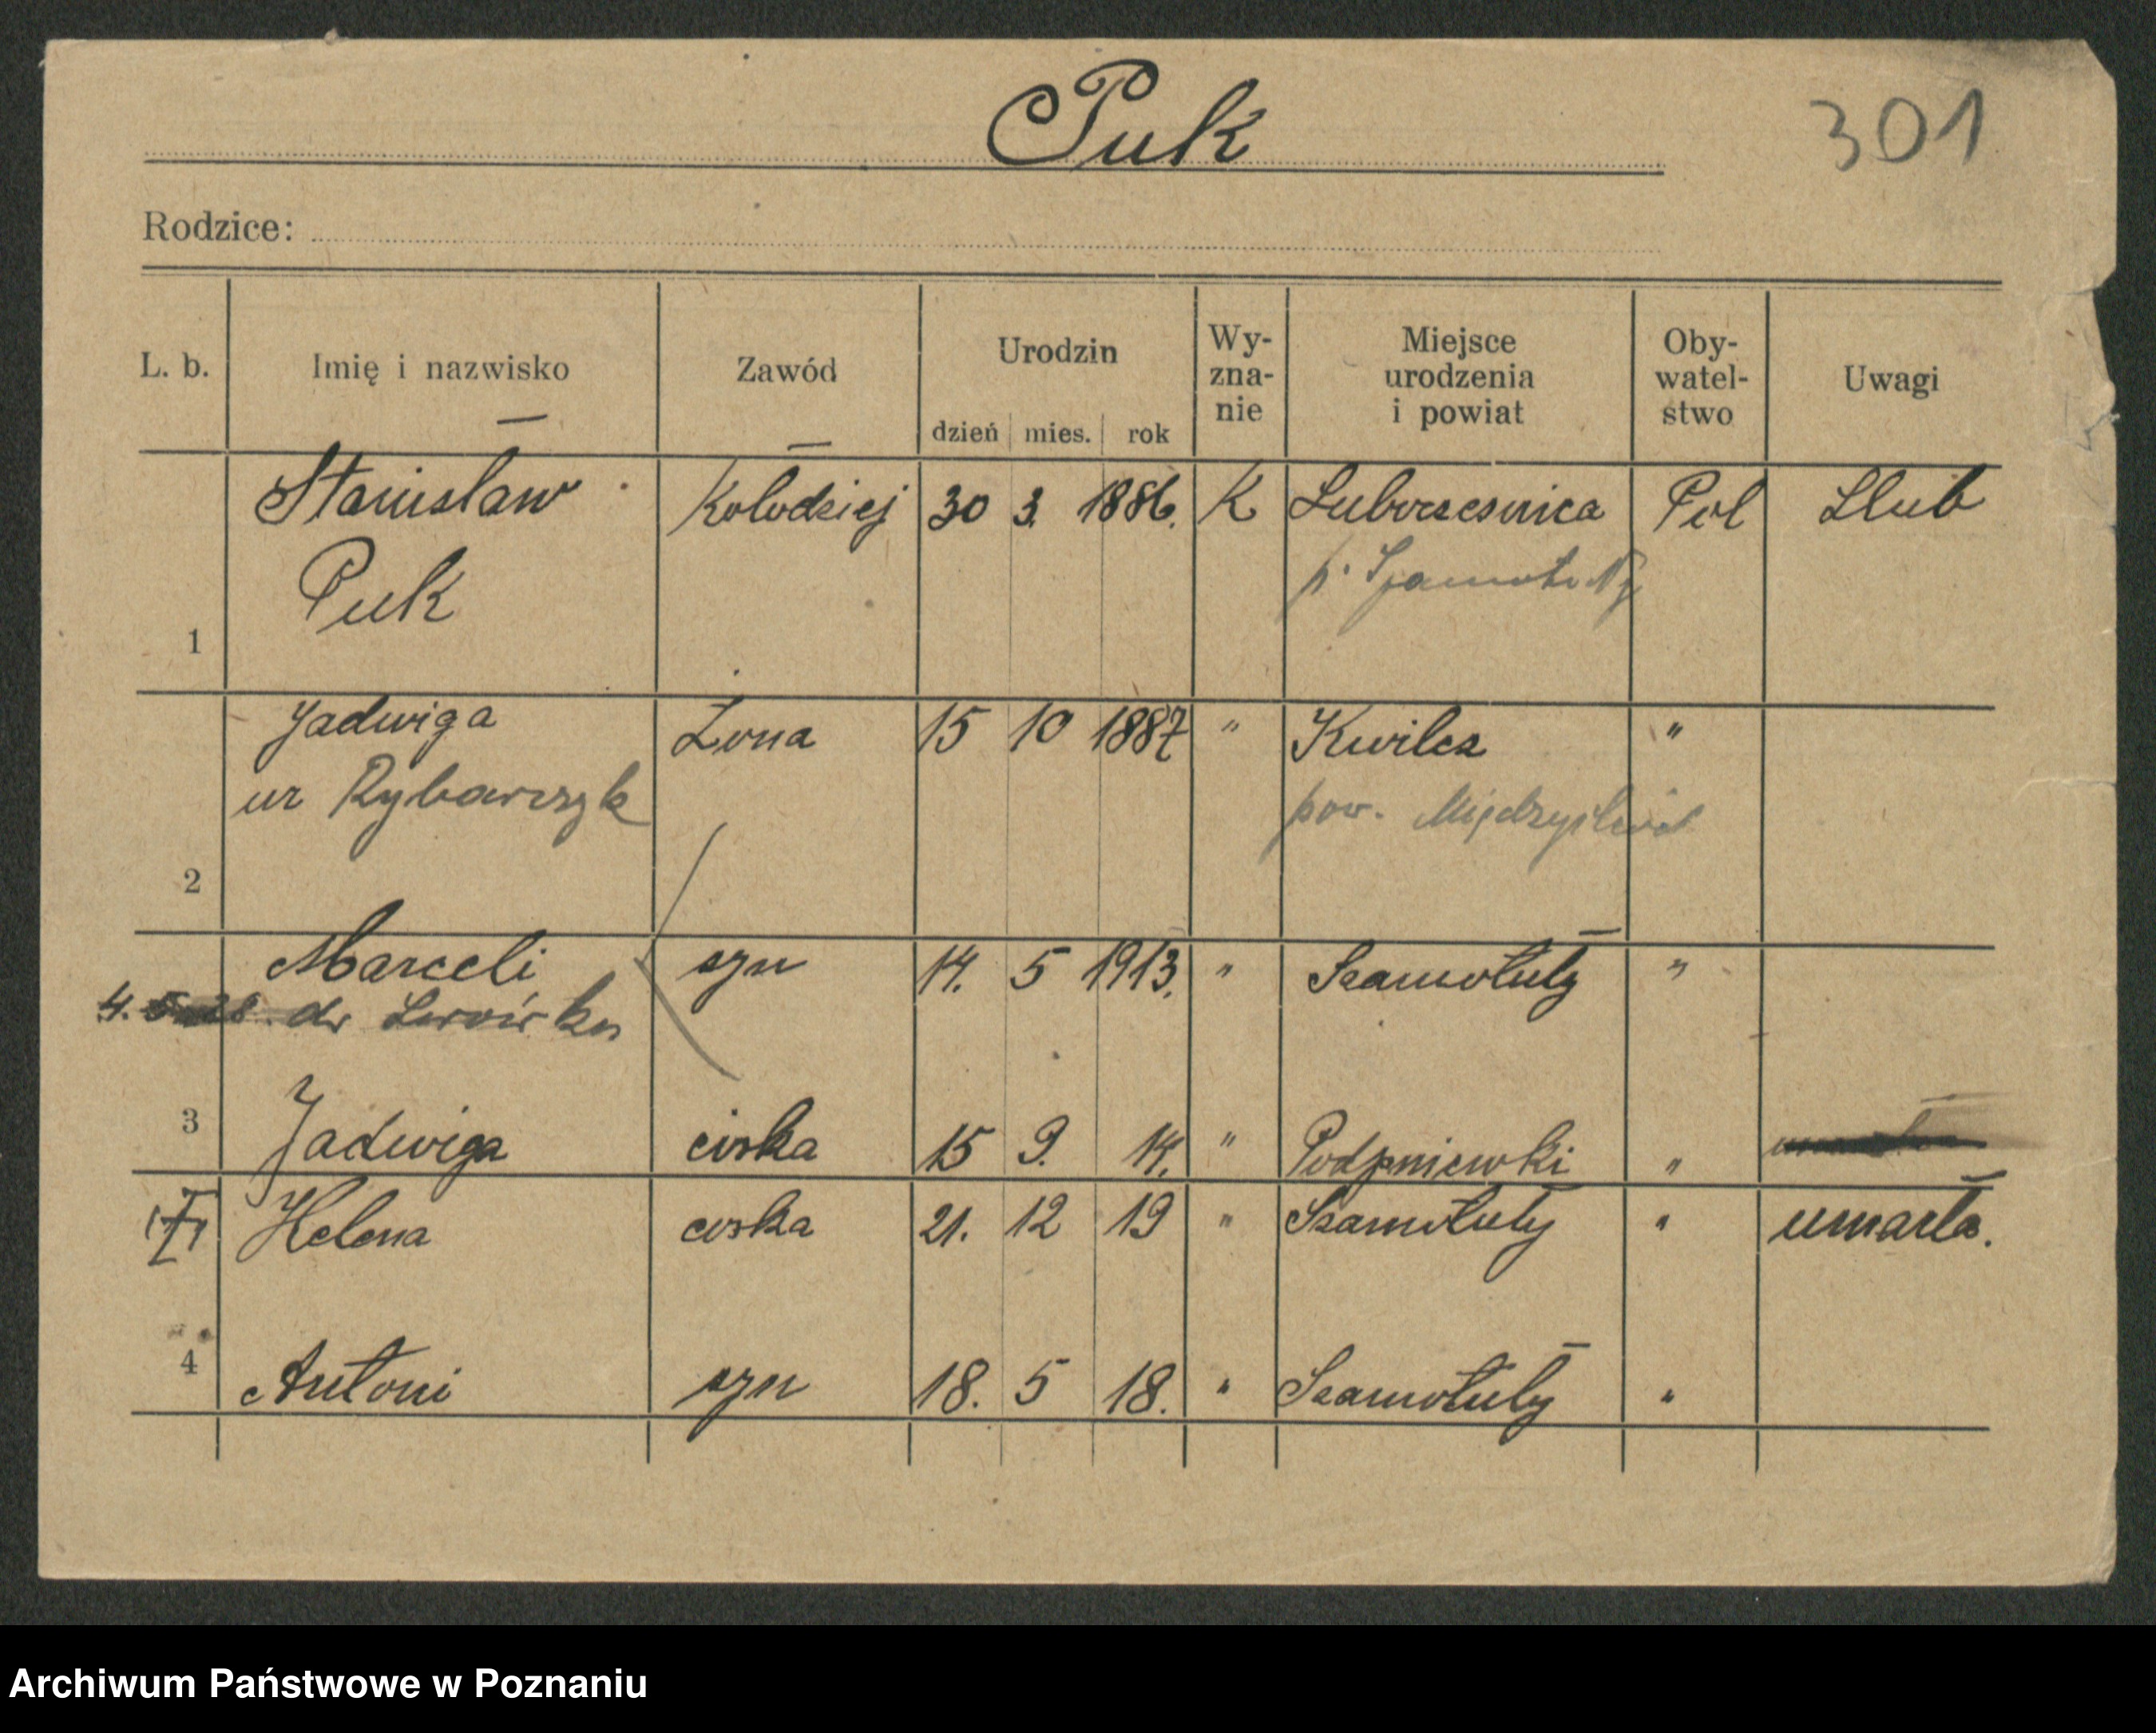 Puk
301
Rodzice:
L. b. Imię i nazwisko Zawód Urodzin dzień mies. rok Wy-zna-nie Miejsce urodzenia i powiat Oby-watel-stwo Uwagi
Stanisław Kołodziej 30 3. 1886. K Pol
Puk
1
Jadwiga Żona 15 10 1887 " Kwilcz "
ur Rybarczyk pow.
2
Marceli syn 14. 5 1913. " Szamotuły "
4. do Lwówka
3 Jadwiga córka 15 9. 14. " Podpniewki "
Helena córka 21. 12 19 " Szamotuły " umarła.
4 Antoni syn 18. 5 18. " Szamotuły "
Archiwum Państwowe w Poznaniu